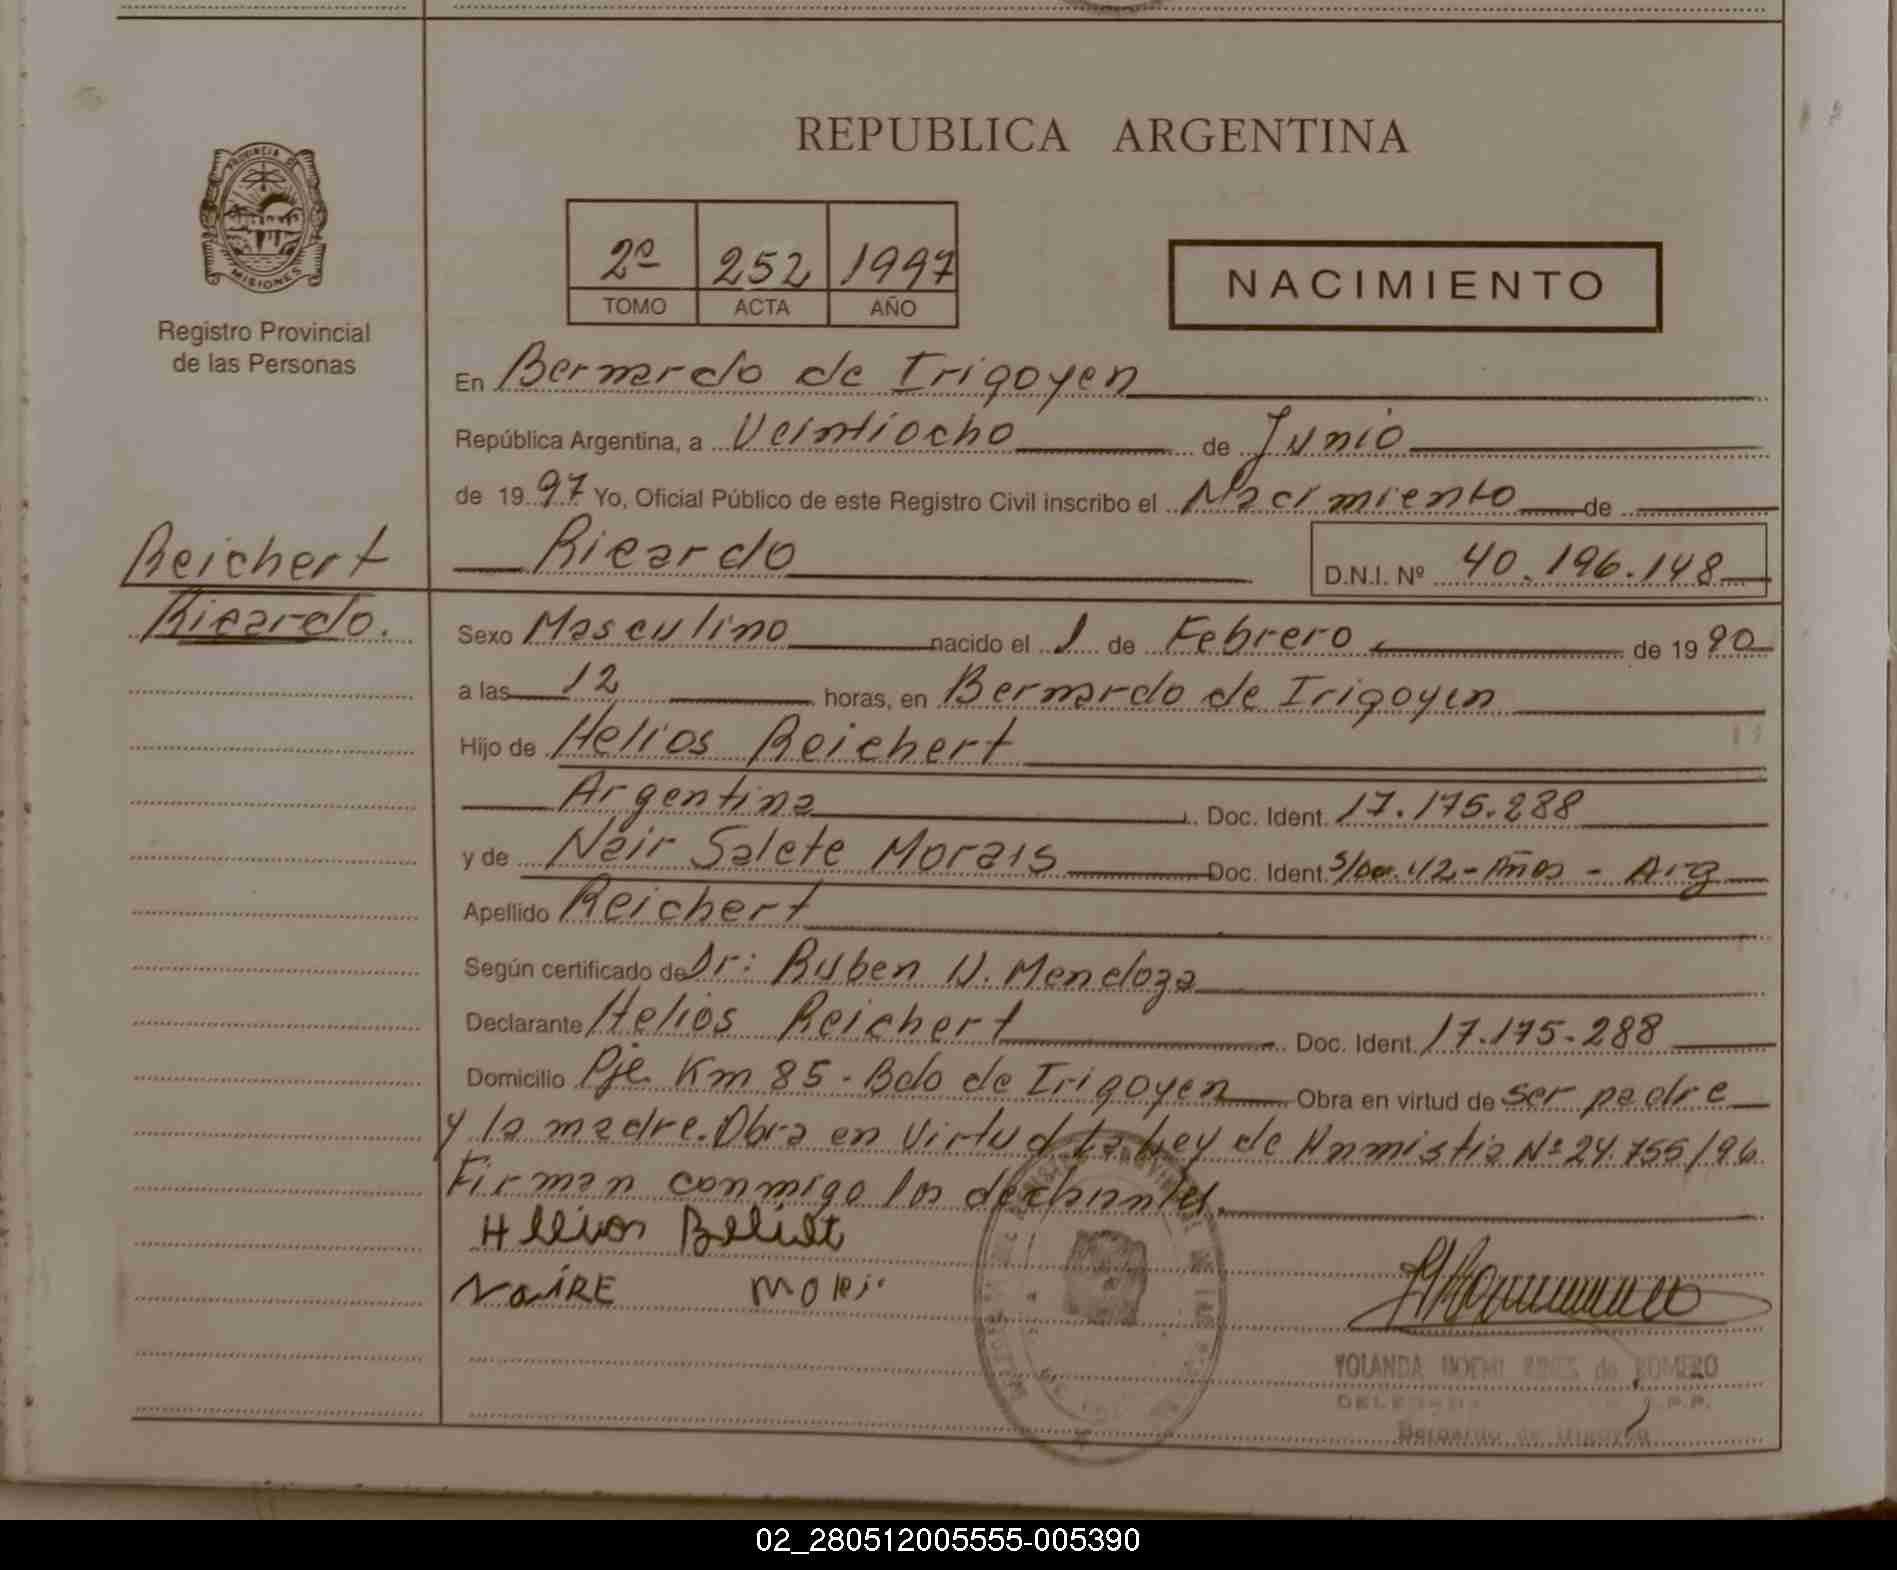 REPUBLICA ARGENTINA
PROVINCIA DE
MISIONES
Registro Provincial
de las Personas
2º 252 1997
TOMO ACTA AÑO
NACIMIENTO
En Bernardo de Irigoyen
República Argentina, a Veintiocho de Junio
de 1997 Yo, Oficial Público de este Registro Civil inscribo el Nacimiento de
Reichert
Ricardo.
Ricardo D.N.I. Nº 40.196.148
Sexo Masculino nacido el 1 de Febrero de 1990
a las 12 horas, en Bernardo de Irigoyen
Hijo de Helios Reichert
Argentina Doc. Ident. 17.175.288
y de Nair Salete Morais Doc. Ident. S/Doc. 42-Años - Arg
Apellido Reichert
Según certificado de Dr: Ruben N. Mendoza
Declarante Helios Reichert Doc. Ident. 17.175-288
Domicilio Pje Km 85 - Bdo de Irigoyen Obra en virtud de ser padre
y la madre. Obra en Virtud La Ley de Anmistia Nº 24.755/96
Firman conmigo los
YOLANDA NOEMI de ROMERO
Bernardo de Irigoyen
02_280512005555-005390